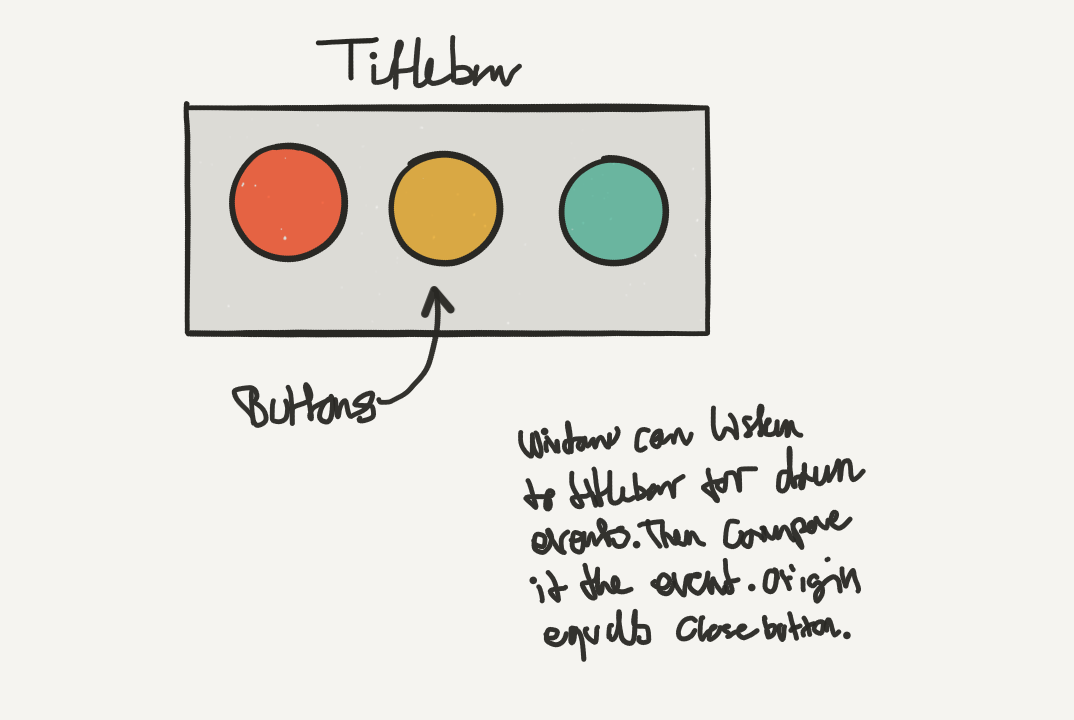 Titlebar
Buttons
Window can listen
to titlebar for down
events. Then compare
if the event.origin
equals close button.